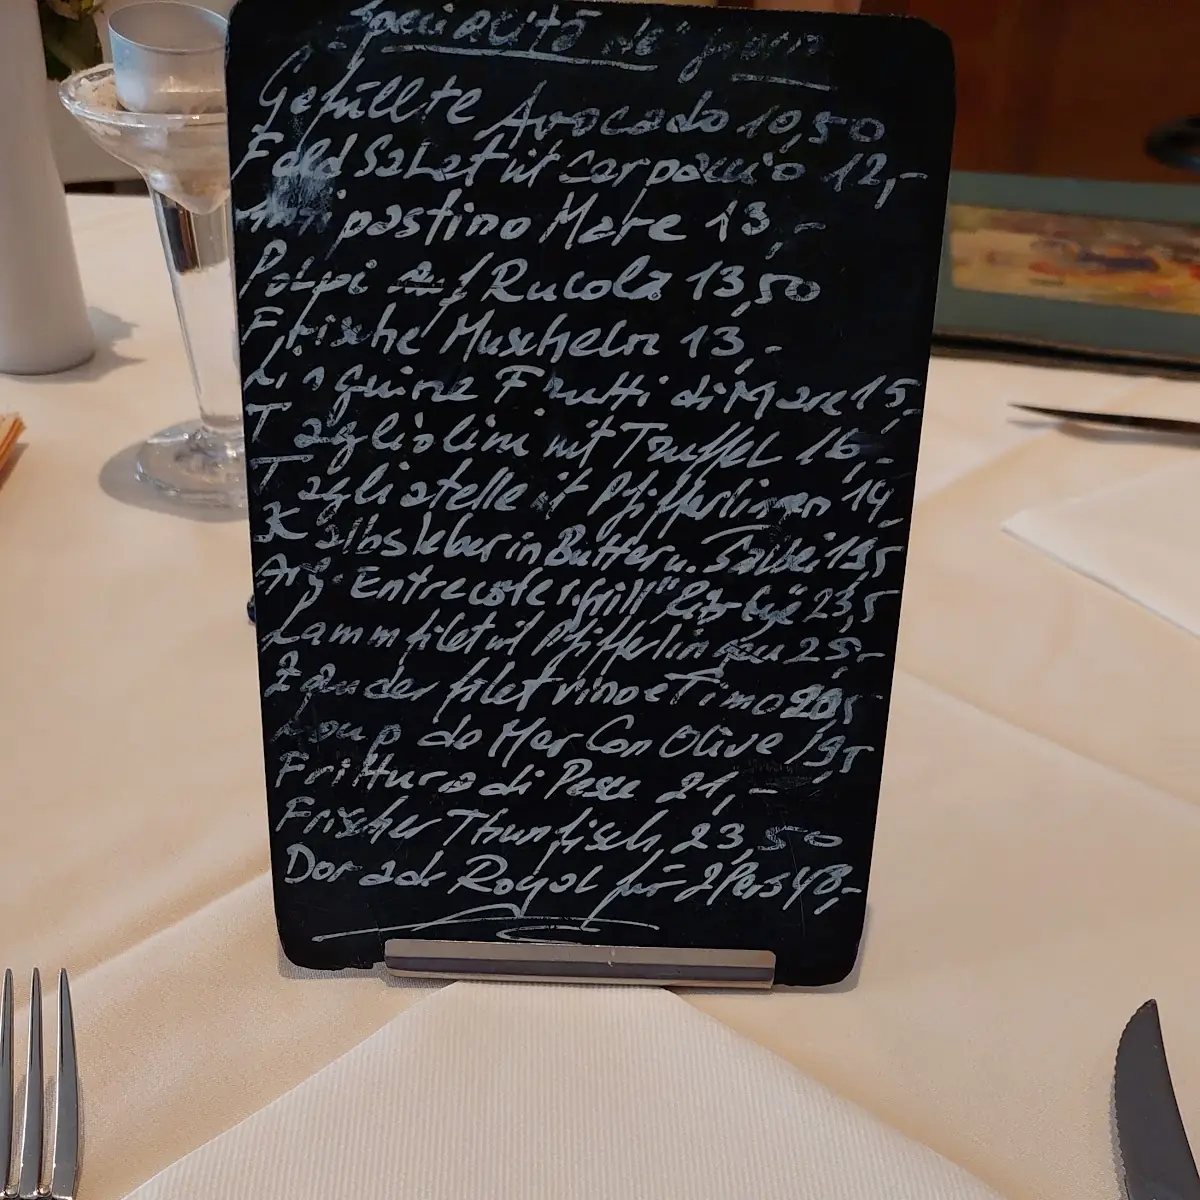 Specialità del giorno
Gefüllte Avocado 10,50
Feldsalat mit Carpaccio 12,-
Antipastino Mare 13,-
Polpi auf Rucola 13,50
Frische Muscheln 13,-
Linguine Frutti di Mare 15,-
Tagliolini mit Trüffel 16,-
Tagliatelle mit Pfifferlingen 14,-
Kalbsleber in Butter u. Salbei 19,5
Arg. Entrecote v. Grill 23,5
Lammfilet mit Pfifferlingen 25,-
Zanderfilet vino e Timo 20,5
Loup de Mer Con Olive 19,5
Frittura di Pesce 21,-
Frischer Thunfisch 23,50
Dorade Royal für 2 Pers 48,-